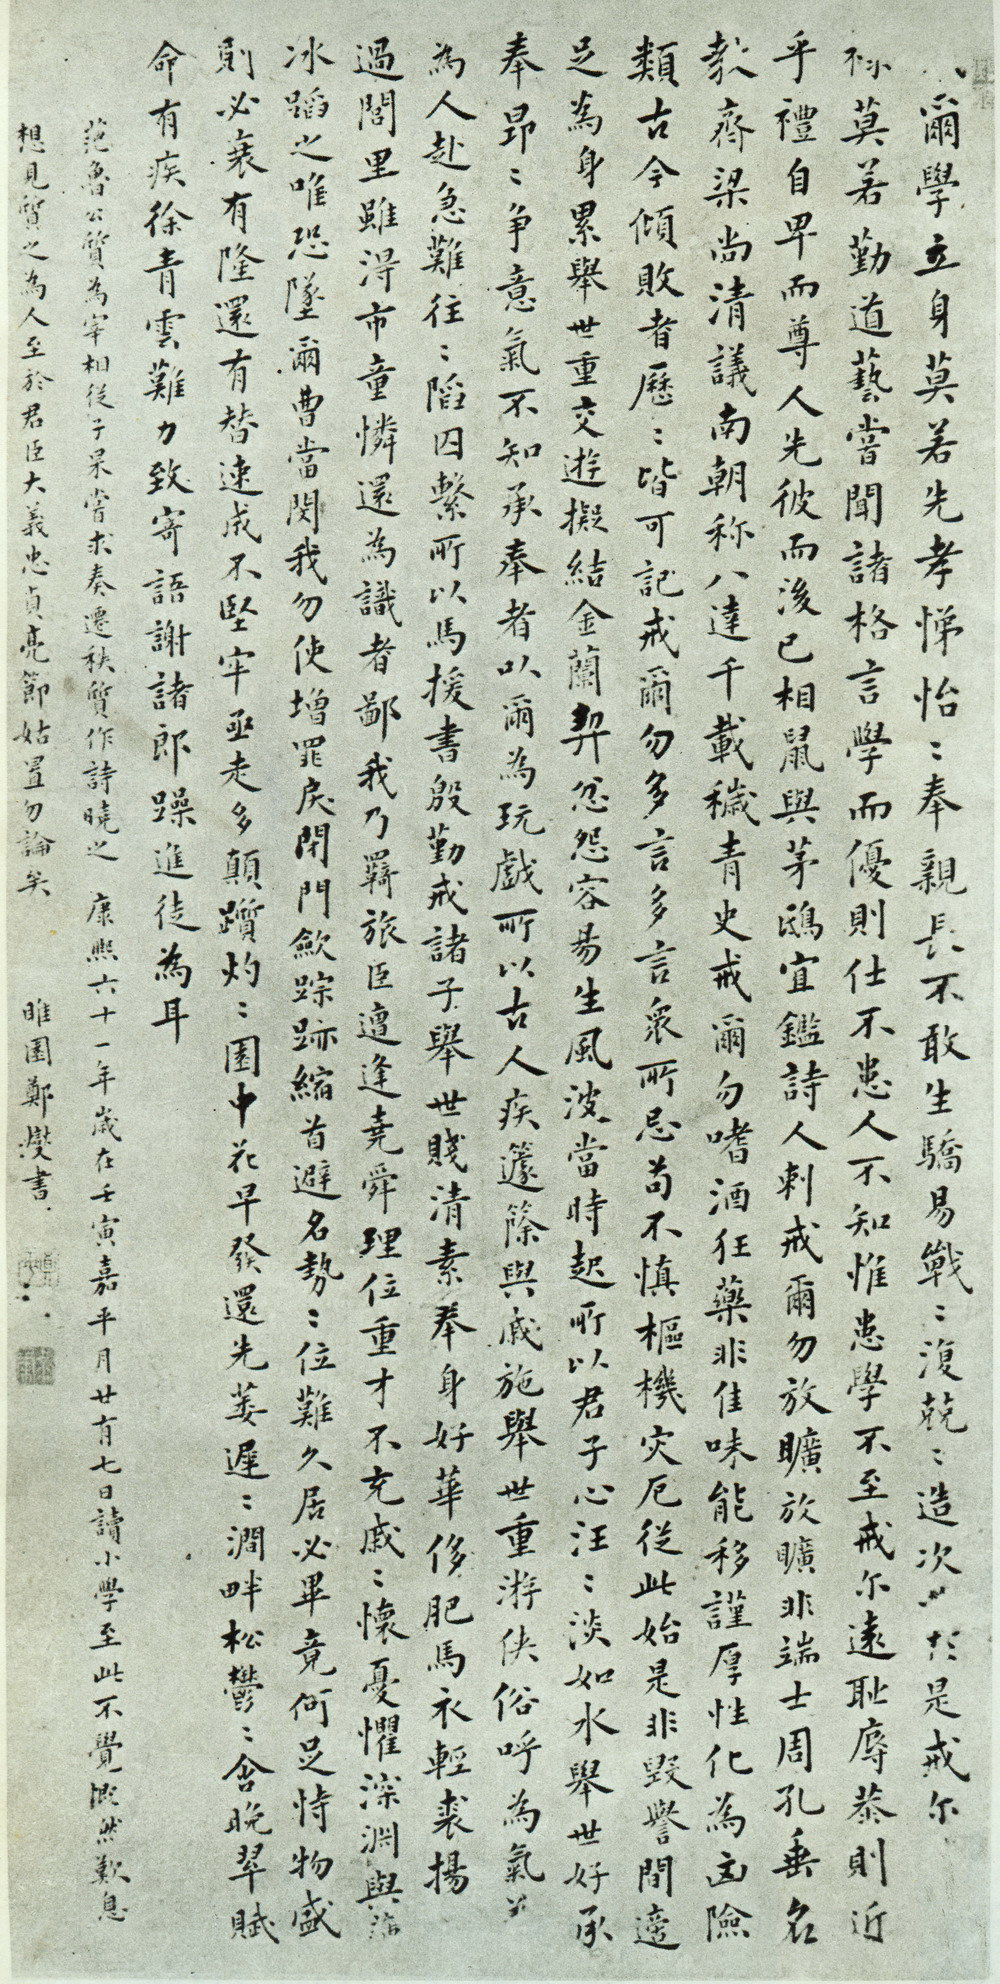 爾學立身莫若先孝悌怡〻奉親長不敢生驕易戰〻復兢〻造次是戒尔
祿莫若勤道藝嘗聞諸格言學而優則仕不患人不知惟患學不至戒尔遠恥辱恭則近
乎禮自卑而尊人先彼而後己相鼠與茅鴟宜鑑詩人刺戒爾勿放曠放曠非端士周孔垂名
教齊梁尚清議南朝称八達千載穢青史戒爾勿嗜酒狂藥非佳味能移謹厚性化為凶險
類古今傾敗者歷〻皆可記戒爾勿多言多言衆所忌苟不慎樞機灾厄從此始是非毀譽間適
足為身累舉世重交遊擬結金蘭契忿怨容易生風波當時起所以君子心汪〻淡如水舉世好承
奉昂〻争意氣不知承奉者以爾為玩戲所以古人疾籧篨與戚施舉世重游俠俗呼為氣義
為人赴急難往〻陷囚繫所以馬援書殷勤戒諸子舉世賤清素奉身好華侈肥馬衣輕裘揚
過閭里雖得市童憐還為識者鄙我乃羇旅臣遭逢堯舜理位重才不充戚〻懷憂懼深淵與薄
冰蹈之唯恐墜爾曹當閔我勿使增罪戾閉門歛踪跡縮首避名勢〻位難久居必畢竟何足恃物盛
則必衰有隆還有替速成不堅牢亟走多顛躓灼〻園中花早發還先萎遲〻澗畔松鬱〻含晚翠賦
命有疾徐青雲難力致寄語謝諸郎躁進徒為耳
范魯公質為宰相從子杲嘗求奏遷秩質作詩曉之 康熙六十一年歲在壬寅嘉平月廿有七日讀小學至此不覺慨然歎息
想見質之為人至於君臣大義忠貞亮節姑置勿論矣 睢園鄭燮書